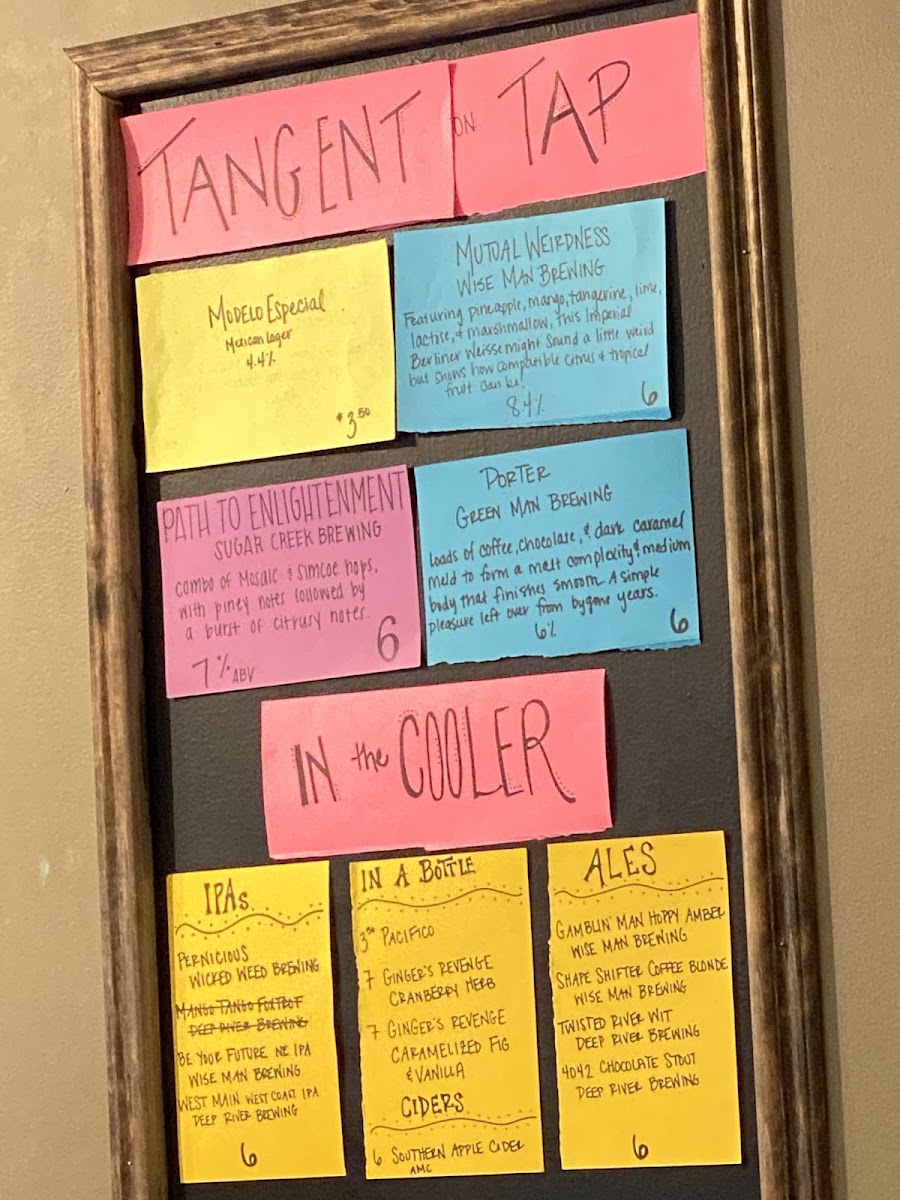 TANGENT ON TAP
MODELO Especial
Mexican Lager
4.4%
$3.50
MUTUAL WEIRDNESS
WISE MAN BREWING
Featuring pineapple, mango, tangerine, lime,
lactose, & marshmallow, this Imperial
Berliner Weisse might sound a little weird
but shows how compatible citrus & tropical
fruit can be!
8.4%
6
PATH TO ENLIGHTENMENT
SUGAR CREEK BREWING
combo of Mosaic & Simcoe hops,
with piney notes followed by
a burst of citrusy notes.
7% ABV
6
PORTER
GREEN MAN BREWING
Loads of coffee, chocolate, & dark caramel
meld to form a malt complexity & medium
body that finishes smooth. A simple
pleasure left over from bygone years.
6%
6
IN the COOLER
IPAs
PERNICIOUS
WICKED WEED BREWING
MANGO TANGO FOXTROT
DEEP RIVER BREWING
BE YOUR FUTURE NE IPA
WISE MAN BREWING
WEST MAIN WEST COAST IPA
DEEP RIVER BREWING
6
IN A BOTTLE
3.50 PACIFICO
7 GINGER'S REVENGE
CRANBERRY HERB
7 GINGER'S REVENGE
CARAMELIZED FIG
& VANILLA
CIDERS
6 SOUTHERN APPLE CIDER
AMC
ALES
GAMBLIN' MAN HOPPY AMBER
WISE MAN BREWING
SHAPE SHIFTER COFFEE BLONDE
WISE MAN BREWING
TWISTED RIVER WIT
DEEP RIVER BREWING
4042 CHOCOLATE STOUT
DEEP RIVER BREWING
6